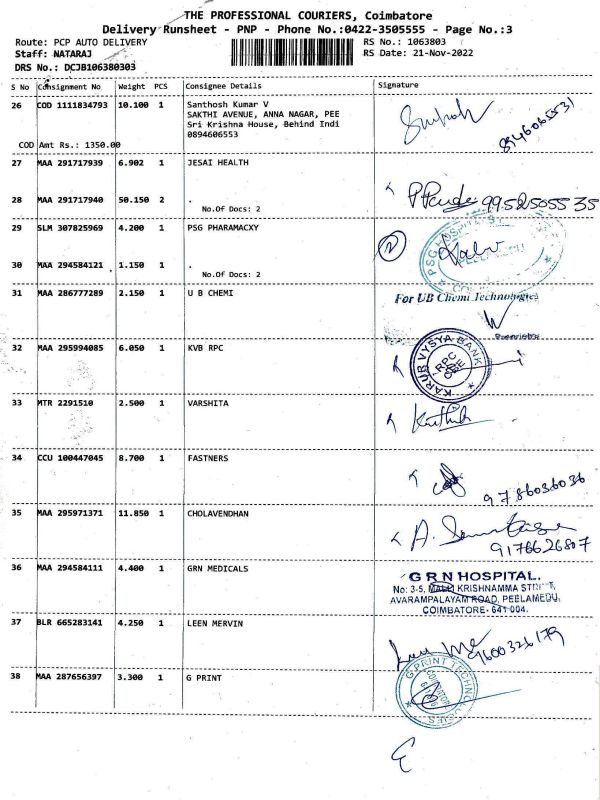 THE PROFESSIONAL COURIERS, Coimbatore
Delivery Runsheet - PNP - Phone No.:0422-3505555 - Page No.:3
Route: PCP AUTO DELIVERY
RS No.: 1063803
Staff: NATARAJ
RS Date: 21-Nov-2022
DRS No.: DCJB106380303
S No Consignment No Weight PCS Consignee Details Signature
26 COD 1111834793 10.100 1 Santhosh Kumar V
SAKTHI AVENUE, ANNA NAGAR, PEE
Sri Krishna House, Behind Indi
0894606553
COD Amt Rs.: 1350.00
27 MAA 291717939 6.902 1 JESAI HEALTH
28 MAA 291717940 50.150 2 .
No.Of Docs: 2
9952505535
29 SLM 307825969 4.200 1 PSG PHARAMACXY
2
30 MAA 294584121 1.150 1 .
No.Of Docs: 2
31 MAA 286777289 2.150 1 U B CHEMI
For UB Chemi Technologies
32 MAA 295994085 6.050 1 KVB RPC
KARUR VYSYA BANK
RPC
33 MTR 2291510 2.500 1 VARSHITA
Karthik
34 CCU 100447045 8.700 1 FASTNERS
9786036036
35 MAA 295971371 11.850 1 CHOLAVENDHAN
9176626807
36 MAA 294584111 4.400 1 GRN MEDICALS
G R N HOSPITAL.
No: 3-5, MALLI KRISHNAMMA STREET,
AVARAMPALAYAM ROAD, PEELAMEDU,
COIMBATORE- 641 004.
37 BLR 665283141 4.250 1 LEEN MERVIN
9600326179
38 MAA 287656397 3.300 1 G PRINT
G PRINT TECHNOLOGIES